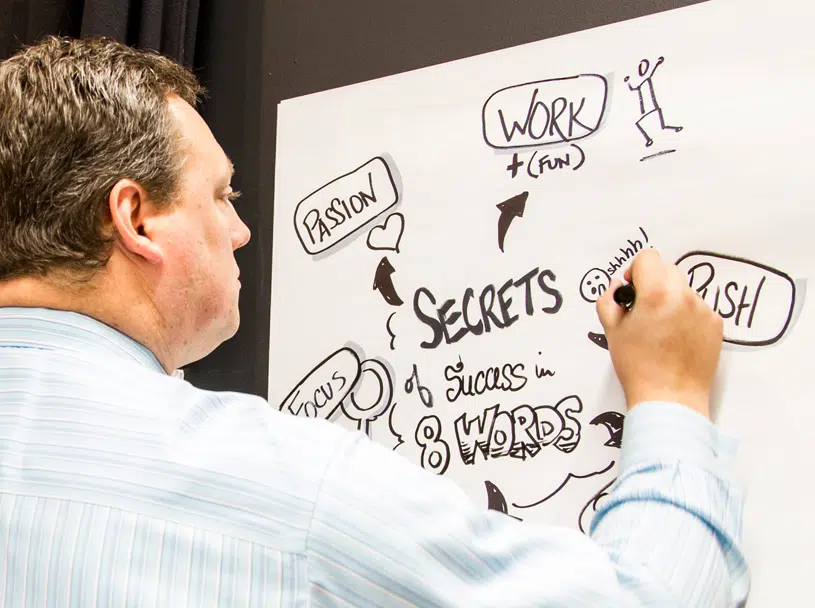 WORK
+ (FUN)
PASSION
shhhh!
PUSH
SECRETS
of Success in
8 WORDS
FOCUS